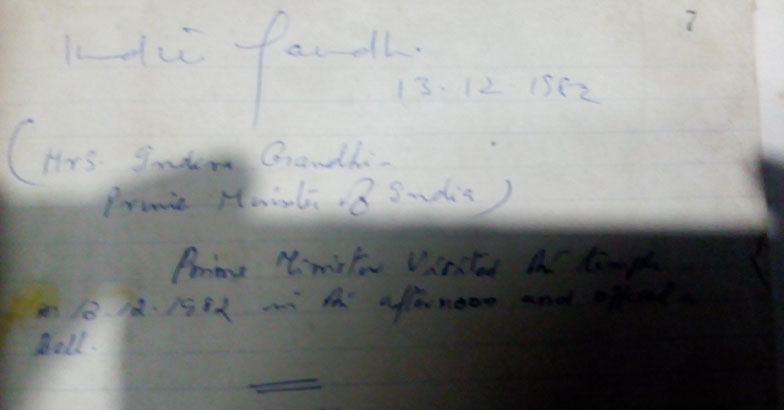 7
Indira Gandhi
13.12.1982
(Mrs. Indira Gandhi-
Prime Minister of India)
Prime Minister Visited the temple
on 13.12.1982 in the afternoon and offered a
Bell.